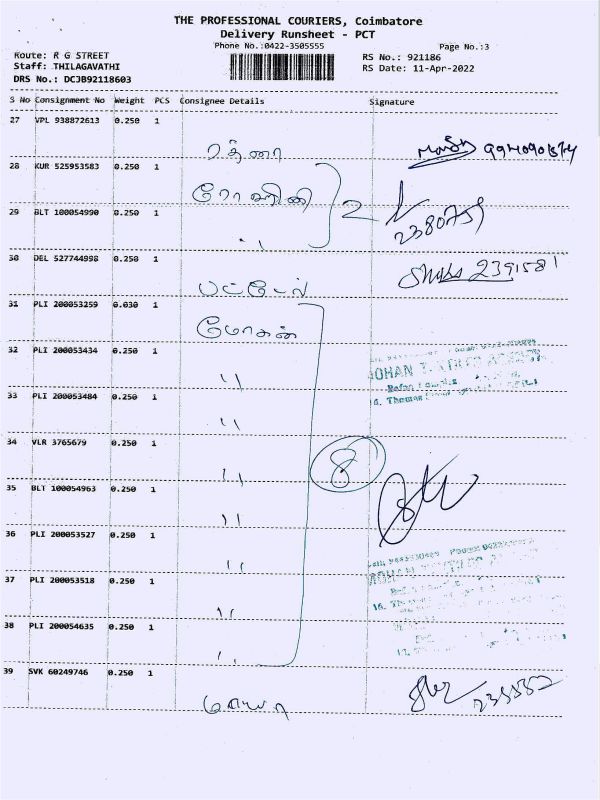 THE PROFESSIONAL COURIERS, Coimbatore
Delivery Runsheet - PCT
Phone No.:0422-3505555
Page No.:3
Route: R G STREET
Staff: THILAGAVATHI
DRS No.: DCJB92118603
RS No.: 921186
RS Date: 11-Apr-2022
S No Consignment No Weight PCS Consignee Details Signature
27 VPL 938872613 0.250 1
ரத்னா
28 KUR 525953583 0.250 1
ரோஹினி
2
29 BLT 100054990 0.250 1
"
30 DEL 527744998 0.250 1
2391581
பட்டேல்
31 PLI 200053259 0.030 1
மோகன்
32 PLI 200053434 0.250 1
"
33 PLI 200053484 0.250 1
"
34 VLR 3765679 0.250 1
"
8
35 BLT 100054963 0.250 1
"
36 PLI 200053527 0.250 1
"
37 PLI 200053518 0.250 1
"
38 PLI 200054635 0.250 1
"
39 SVK 60249746 0.250 1